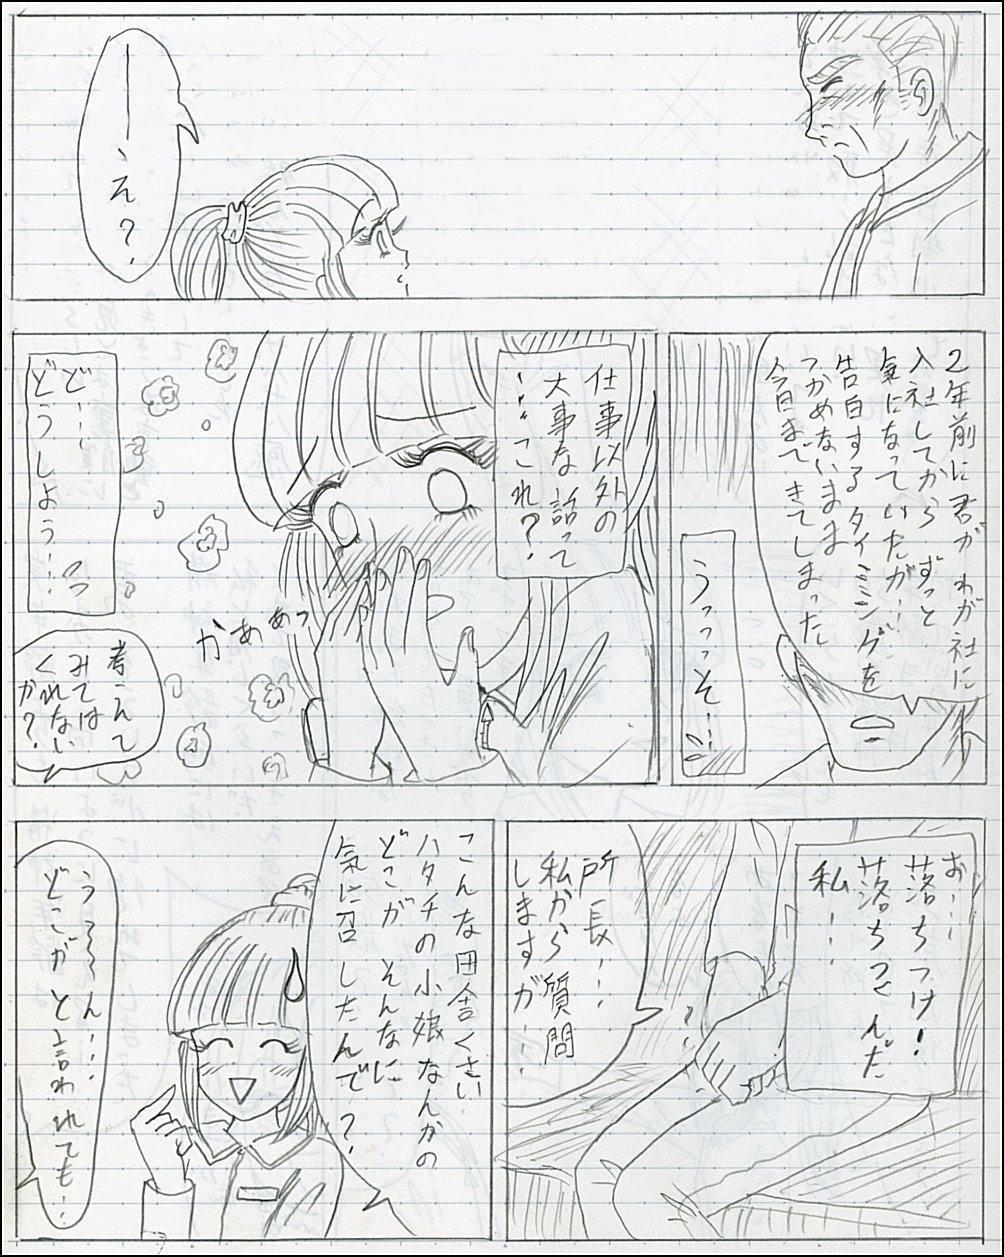 ――、え?
2年前に君が わが社に
入社してから ずっと
気になっていたが…
告白するタイミングを
つかめないまま
今日まできてしまった
うっっっそ…!
仕事以外の
大事な話って
…これ?
かあぁっ
ど…
どうしよう…っ
考えて
みては
くれない
か?
お…
落ちつけ!
落ちつくんだ
私…
所長…
私から質問
しますが…
こんな田舎くさい
ハタチの小娘なんかの
どこが そんなに
気に召したんで?
う~~ん…
どこが と言われても…